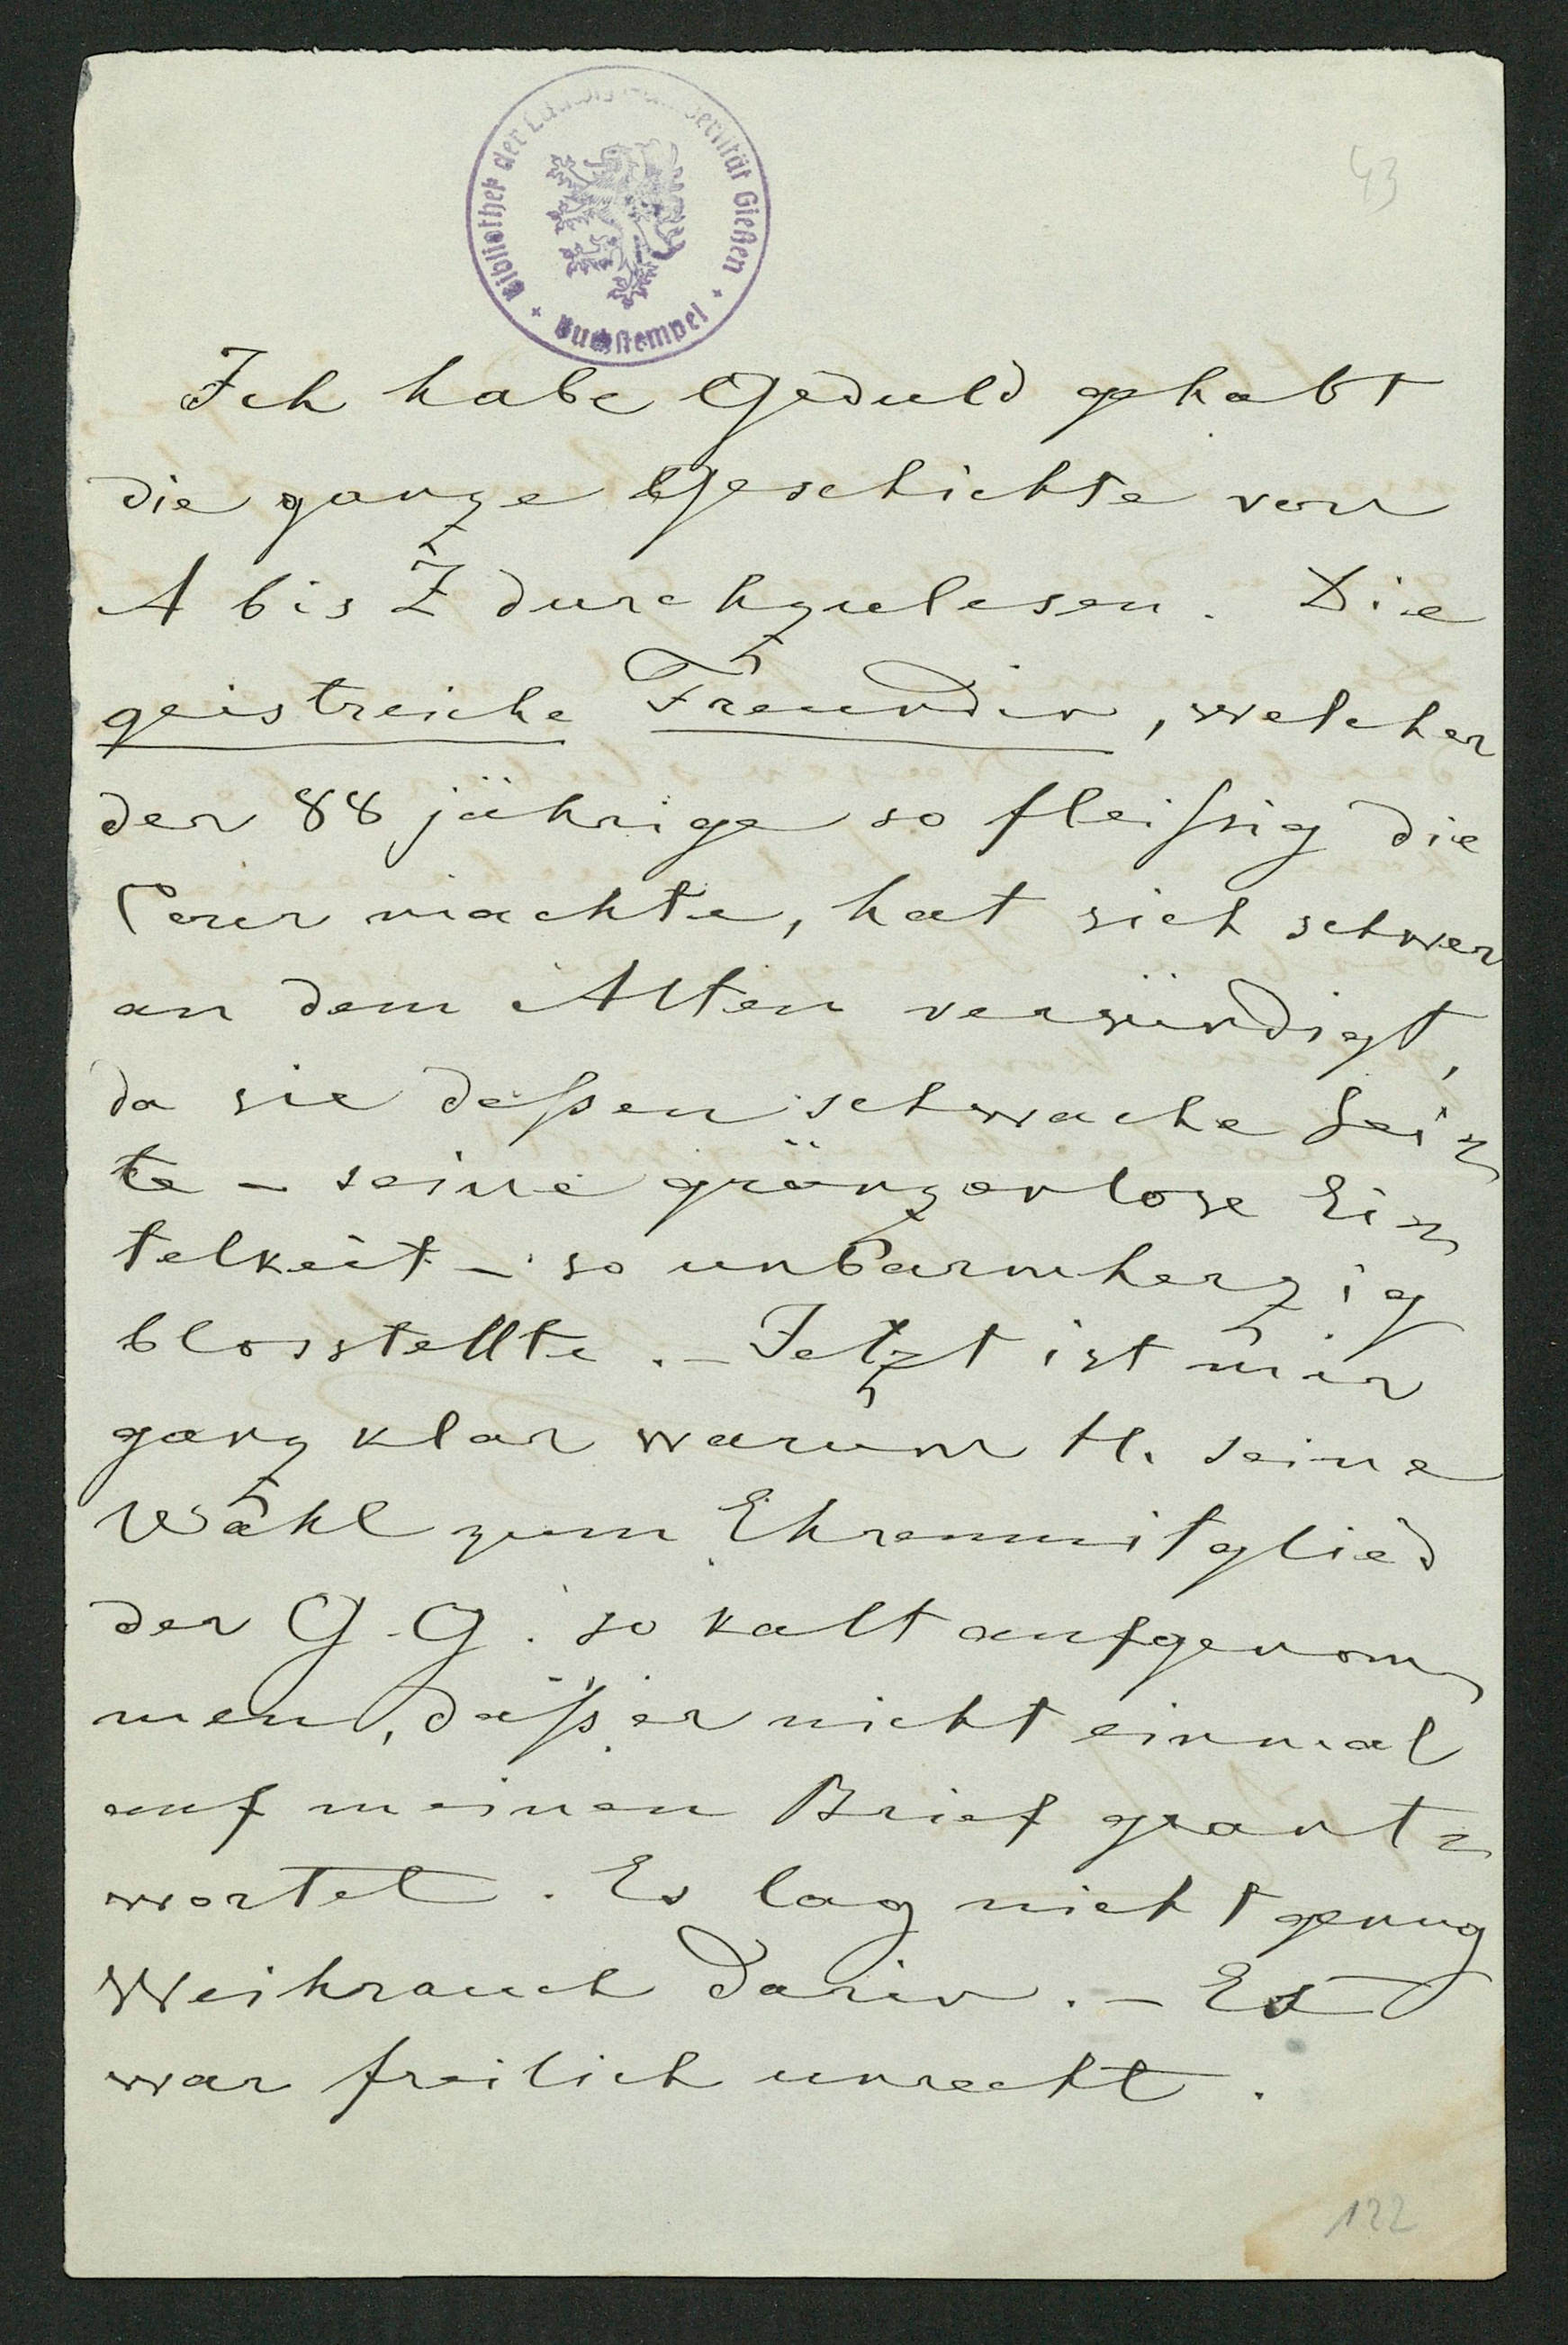 Bibliothek der Ludwigs-Universität Gießen
Buchstempel
43
Ich habe Geduld gehabt
die ganze Geschichte von
A bis Z durchzulesen. Die
geistreiche Freundin, welcher
der 88 jährige so fleißig die
Cour machte, hat sich schwer
an dem Alten versündigt,
da sie deßen schwache Sei-
te – seine gränzenlose Ei-
telkeit – so unbarmherzig
blosstellte. – Jetzt ist mir
ganz klar warum H. seine
Wahl zum Ehrenmitglied
der G. G. so kalt aufgenom-
men, daß er nicht einmal
auf meinen Brief geant-
wortet. Es lag nicht genug
Weihrauch darin. – Es
war freilich unrecht.
122